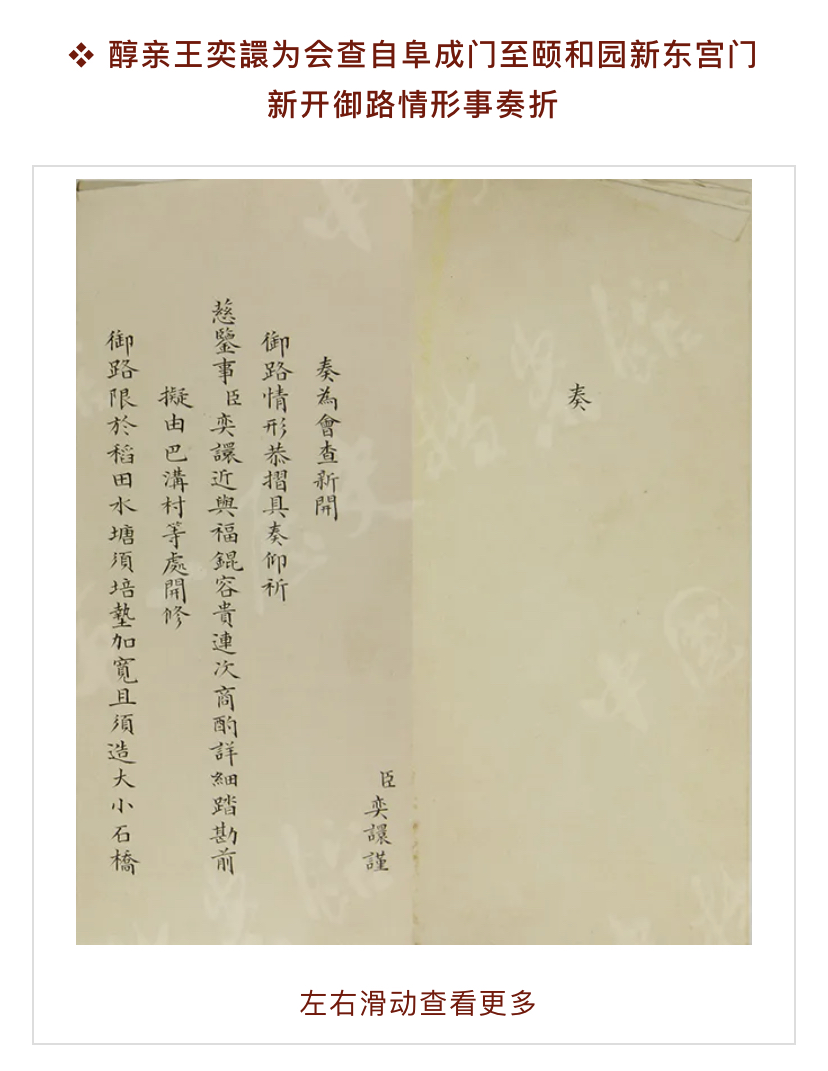 ❖ 醇亲王奕譞为会查自阜成门至颐和园新东宫门
新开御路情形事奏折
奏
臣奕譞謹
奏為會查新開
御路情形恭摺具奏仰祈
慈鑒事臣奕譞近與福錕容貴連次商酌詳細踏勘前
擬由巴溝村等處開修
御路限於稻田水塘須培墊加寬且須造大小石橋
左右滑动查看更多